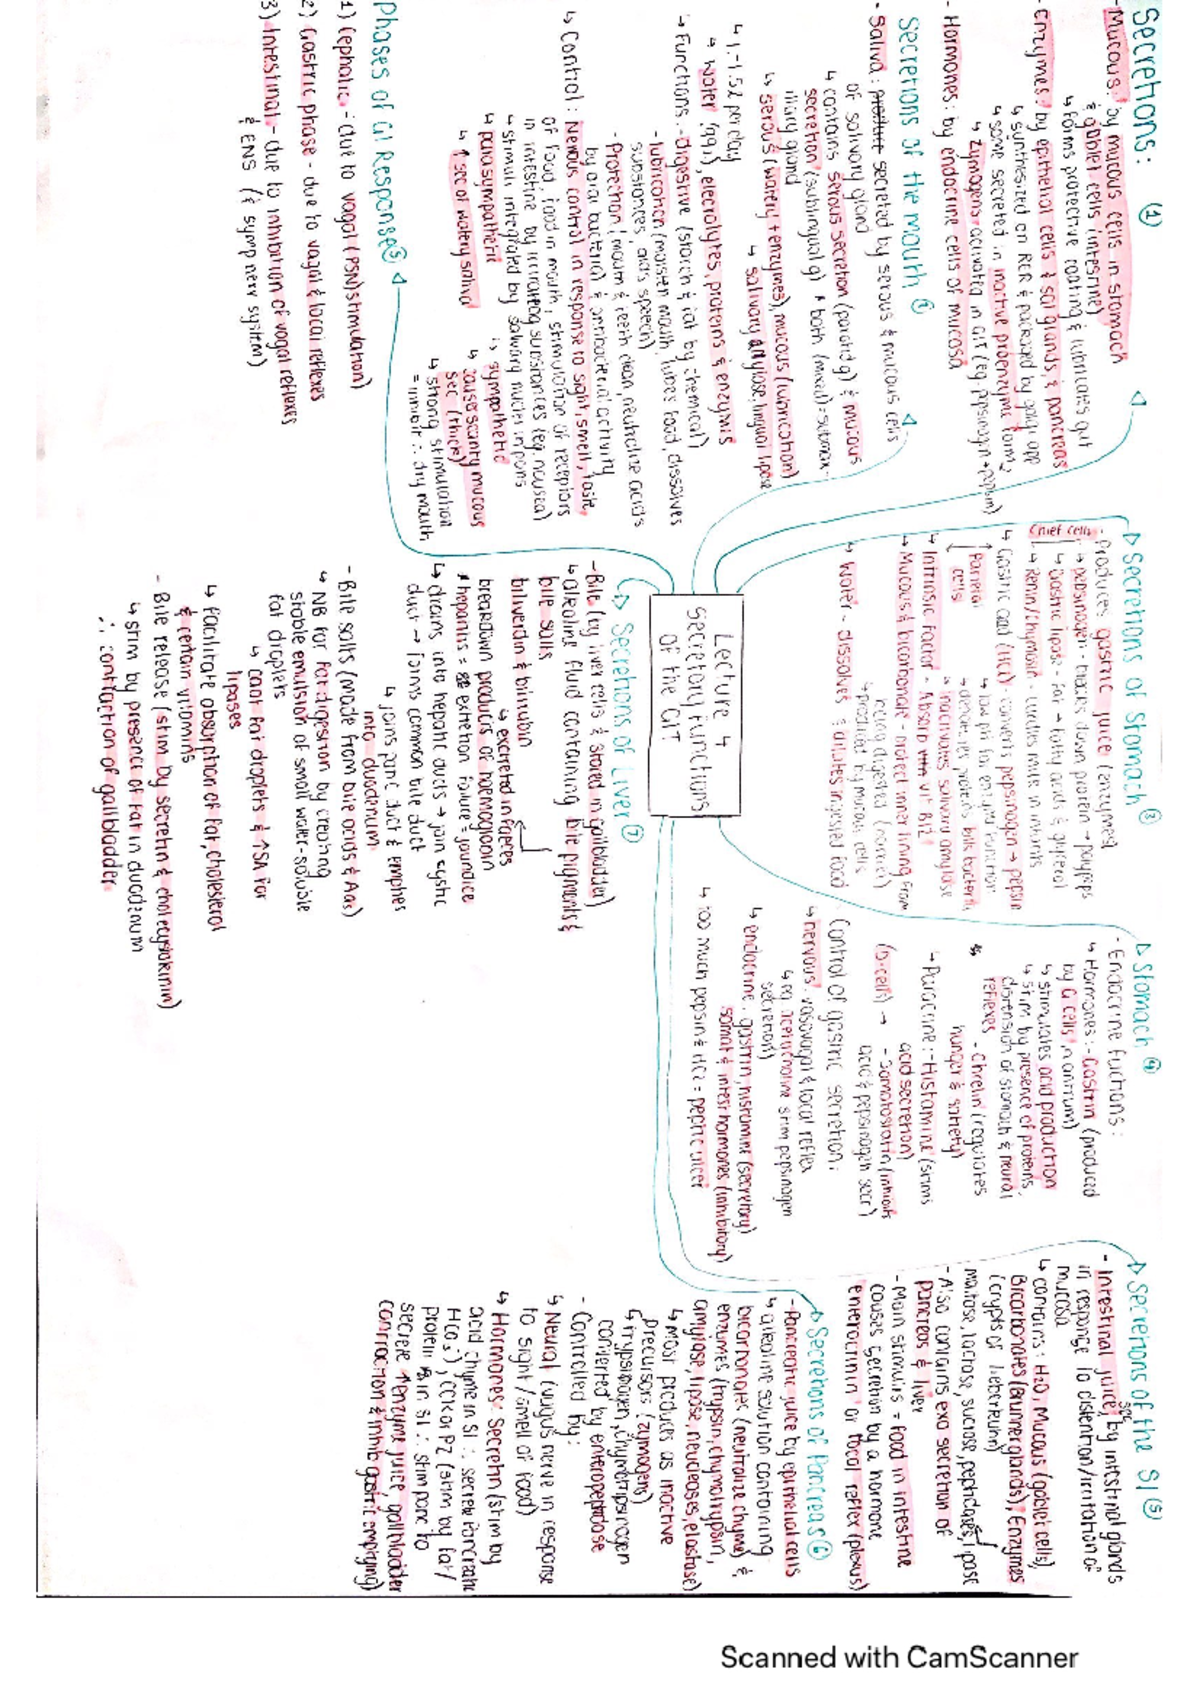 Secretions: (1)
- Mucous: by mucous cells in stomach
& goblet cells (intestine)
↳ forms protective coating & lubricates gut
- Enzymes: by epithelial cells & sal glands, & pancreas
↳ synthesized on RER & packaged by golgi app
↳ some secreted in inactive proenzyme form,
↳ zymogens - activated in GIT (eg pepsinogen → pepsin)
- Hormones: by endocrine cells of mucosa
Secretions of the mouth (2)
- Saliva: secreted by serous & mucous cells
of salivary gland
↳ contains serous secretion (parotid g) & mucous
secretion (sublingual g) & both (mixed) = submax-
illary gland
↳ serous (watery + enzymes), mucous (lubrication)
↳ salivary amylase, lingual lipase
↳ 1-1.5L per day
↳ water (99%), electrolytes, proteins & enzymes
↳ Functions: - digestive (starch & fat by chemical)
- lubrication (moisten mouth, lubes food, dissolves
substances, aids speech)
- Protection (mouth & teeth clean, neutralize acids
by oral bacteria) & antibacterial activity
↳ Control: Nervous control in response to sight, smell, taste
of food, food in mouth, stimulation of receptors
in intestine by irritating substances (eg nausea)
↳ stimuli integrated by salivary nuclei in pons
↳ parasympathetic
↳ ↑ sec of watery saliva
↳ sympathetic
↳ causes scanty mucous
sec (thick)
↳ strong stimulation
= inhibit ∴ dry mouth
Phases of GI Response
1) Cephalic - (due to vagal (PSN) stimulation)
2) Gastric phase - due to vagal & local reflexes
3) Intestinal - due to inhibition of vagal reflexes
& ENS (& symp nerv system)
Secretions of Stomach (3)
- Produces gastric juice (enzymes)
Chief cells
↳ pepsinogen - breaks down protein → polypeps
↳ Gastric lipase - fat → fatty acids & glycerol
↳ Renin/chymosin - curdles milk in infants
↳ Gastric acid (HCl) - converts pepsinogen → pepsin
Parietal
cells
↳ low pH for enzyme function
↳ denatures proteins, kills bacteria,
↳ inactivates salivary amylase
↳ Intrinsic Factor - Absorb vit B12
↳ Mucous & bicarbonate - protect inner lining from
being digested (barrier)
↳ produced by mucous cells
↳ Water - dissolves & dilutes ingested food
Stomach (4)
- Endocrine Fuctions:
↳ Hormones: - Gastrin (produced
by G cells in antrum)
↳ stimulates acid production
↳ stim by presence of proteins,
distension of stomach & neural
reflexes
- Ghrelin (regulates
hunger & satiety)
↳ Paracrine: - Histamine (stims
acid secretion)
(D-cells) → - Somatostatin (inhibits
acid & pepsinogen secr)
Control of gastric secretion:
↳ nervous: vasovagal & local reflex
↳ eg acetylcholine stim pepsinogen
secretion)
↳ endocrine: gastrin, histamine (secretory)
somat & intest hormones (inhibitory)
↳ too much pepsin & HCl = peptic ulcer
Secretions of the SI (5)
- Intestinal juice sec by intestinal glands
in response to distention/irritation of
mucosa
↳ contains: H2O, Mucous (goblet cells),
Bicarbonates (Brunner glands), Enzymes
(crypts of lieberkuhn)
maltase, lactase, sucrase, peptidases, lipase
- Also contains exo secretion of
pancreas & liver
- Main stimulus = food in intestine
causes secretion by a hormone
enterocrinin or local reflex (plexus)
Secretions of Pancreas (6)
- Pancreatic juice by epithelial cells
↳ alkaline solution containing
bicarbonates (neutralize chyme) &
enzymes (trypsin, chymotrypsin,
amylase, lipase, nucleases, elastase)
↳ Most produced as inactive
precursors (zymogens)
↳ trypsinogen, chymotrypsinogen
converted by enteropeptidase
- Controlled by:
↳ Neural (vagus nerve in response
to sight/smell of food)
↳ Hormones: Secretin (stim by
acid chyme in SI ∴ secrete Pancreatic
HCO3), CCK or PZ (stim by fat/
protein in SI ∴ stim panc to
secrete ↑ enzyme juice, gallbladder
contraction & inhib gastric emptying)
Lecture 4
Secretory Functions
of the GIT
Secretions of Liver (7)
- Bile (by liver cells & stored in gallbladder)
↳ alkaline fluid containing bile pigments &
bile salts
biliverdin & bilirubin
↳ excreted in faeces
breakdown products of hemoglobin
* hepatitis = excretion failure = jaundice
↳ drains into hepatic ducts → join cystic
duct → forms common bile duct
↳ joins panc duct & empties
into duodenum
- Bile salts (made from bile acids & AAs)
↳ NB for fat digestion by creating
stable emulsion of small water-soluble
fat droplets
↳ coat fat droplets & ↑ SA for
lipases
↳ Facilitate absorption of fat, cholesterol
& certain vitamins
- Bile release (stim by secretin & cholecystokinin)
↳ stim by presence of fat in duodenum
∴ contraction of gallbladder
Scanned with CamScanner